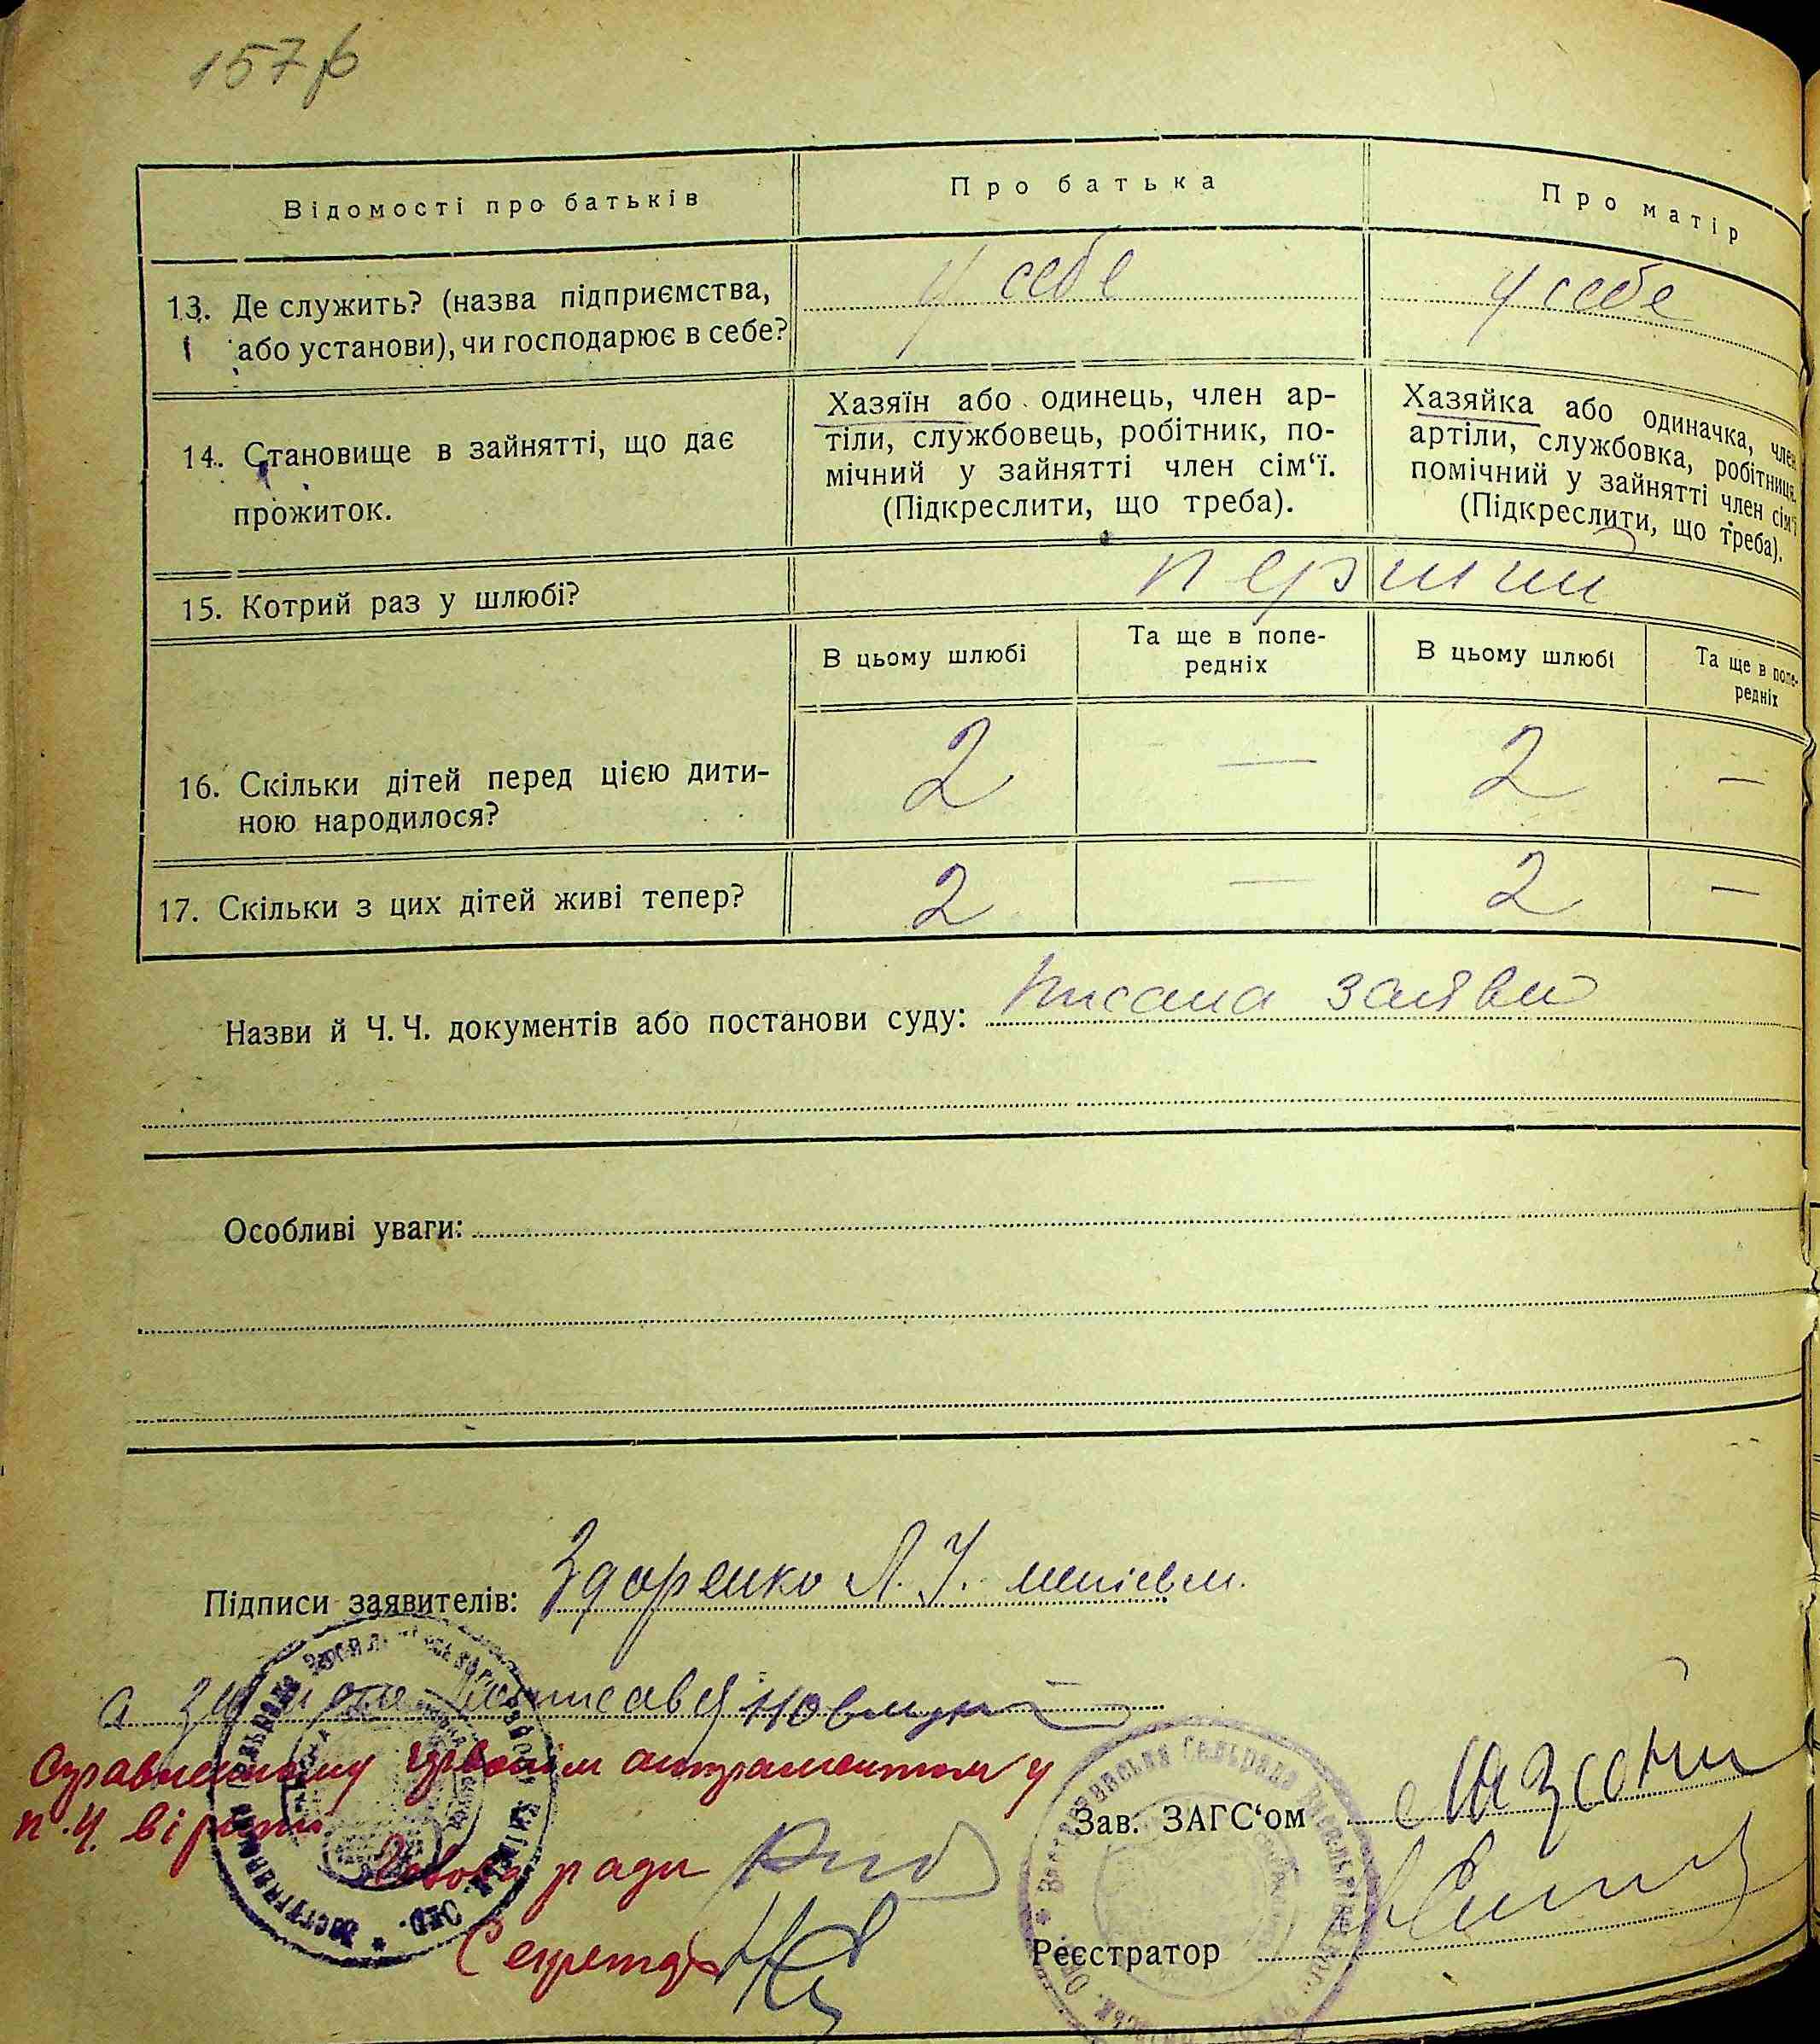 157
Відомості про батьків
Про батька
Про матір
13. Де служить? (назва підприємства,
або установи), чи господарює в себе?
у себе
у себе
14. Становище в зайнятті, що дає
прожиток.
Хазяїн або одинець, член ар-
тіли, службовець, робітник, по-
мічний у зайнятті член сім‘ї.
(Підкреслити, що треба).
Хазяйка або одиначка, член
артіли, службовка, робітниця,
помічний у зайнятті член сім‘ї
(Підкреслити, що треба).
15. Котрий раз у шлюбі?
перший
В цьому шлюбі
Та ще в попе-
редніх
В цьому шлюбі
Та ще в попе-
редніх
16. Скільки дітей перед цією дити-
ною народилося?
2 — 2 —
17. Скільки з цих дітей живі тепер?
2 — 2 —
Назви й Ч. Ч. документів або постанови суду: заяви
Особливі уваги:
Підписи заявителів: Здоренко Л. У.
а
у
п. 4
ради
Секретар
Зав. ЗАГС‘ом
Реєстратор